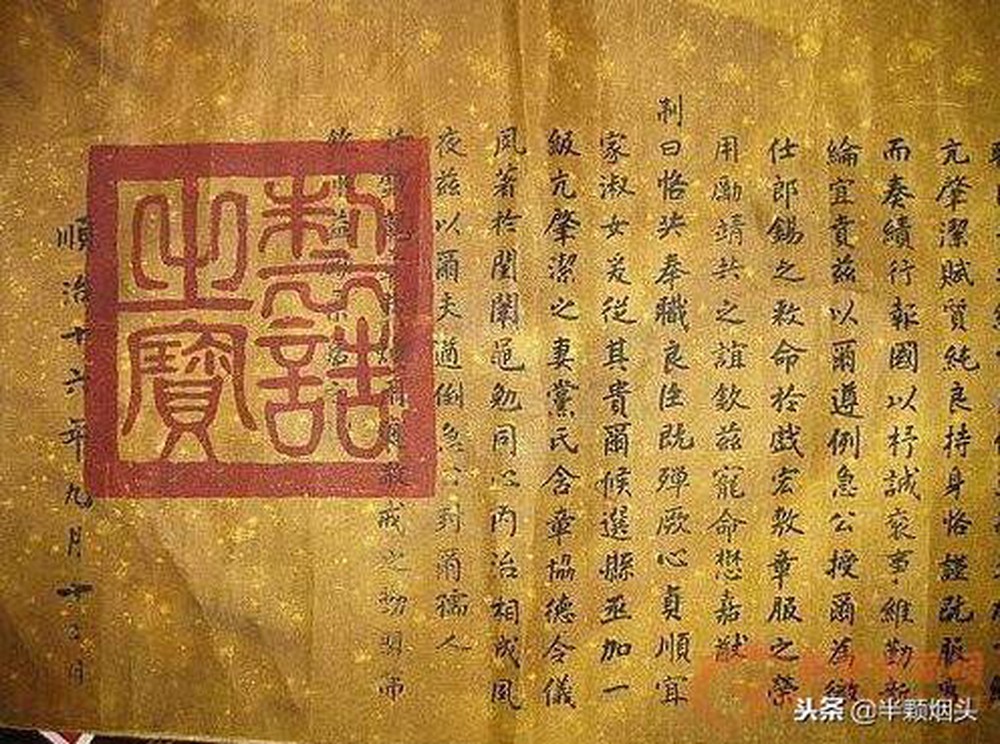 亢肇潔賦質純良持身恪謹既服官
而奏績行報國以抒誠裒事維勤斯
綸宜賁茲以爾遵例急公授爾為徵
仕郎錫之敕命於戲宏敷章服之榮
用勵靖共之誼欽茲寵命懋嘉猷
制曰恪共奉職良臣既殫厥心貞順宜
家淑女爰從其貴爾候選縣丞加一
級亢肇潔之妻黨氏含章協德令儀
夙著於閨闌黽勉同心內治相成夙
夜茲以爾夫遵例急公封爾孺人
敬戒之
順治十六年九月日
制誥之寶
头条 @半颗烟头